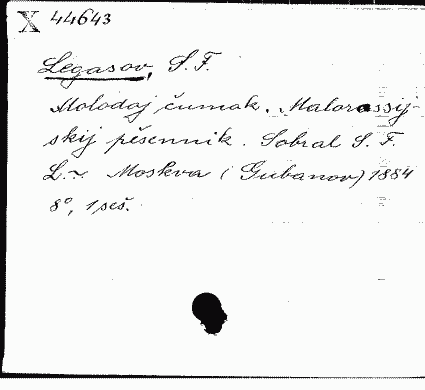 X 44643
Legasov, S. F.
Molodoj čumak. Malorossij-
skij pěsennik. Sobral S. F.
L.~ Moskva (Gubanov) 1884
8°, 1 seš.